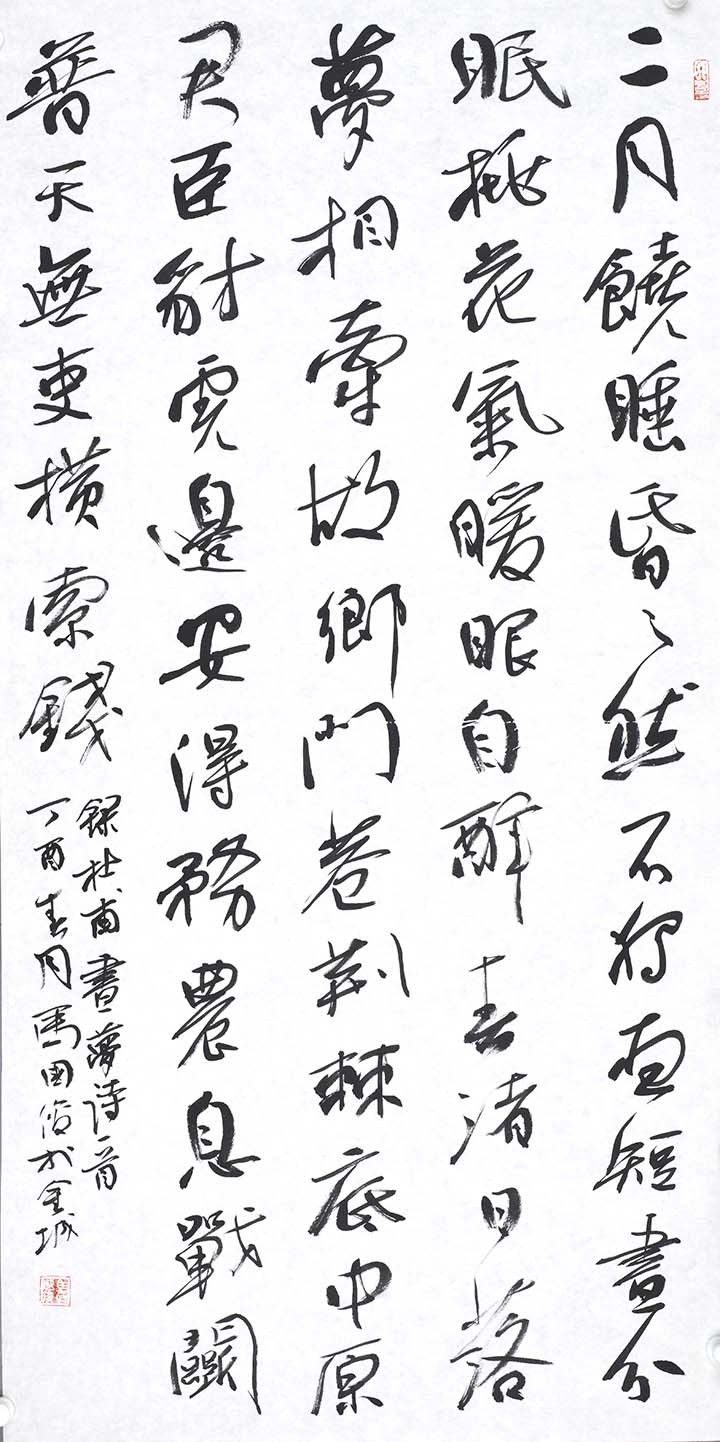 二月饒睡昏々然不獨夜短晝分
眠桃花氣暖眼自醉春渚日落
夢相牽故鄉門巷荆棘底中原
君臣豺虎邊安得務農息戰鬭
普天無吏横索錢
錄杜甫晝夢诗一首
丁酉春月馬國俊於金城